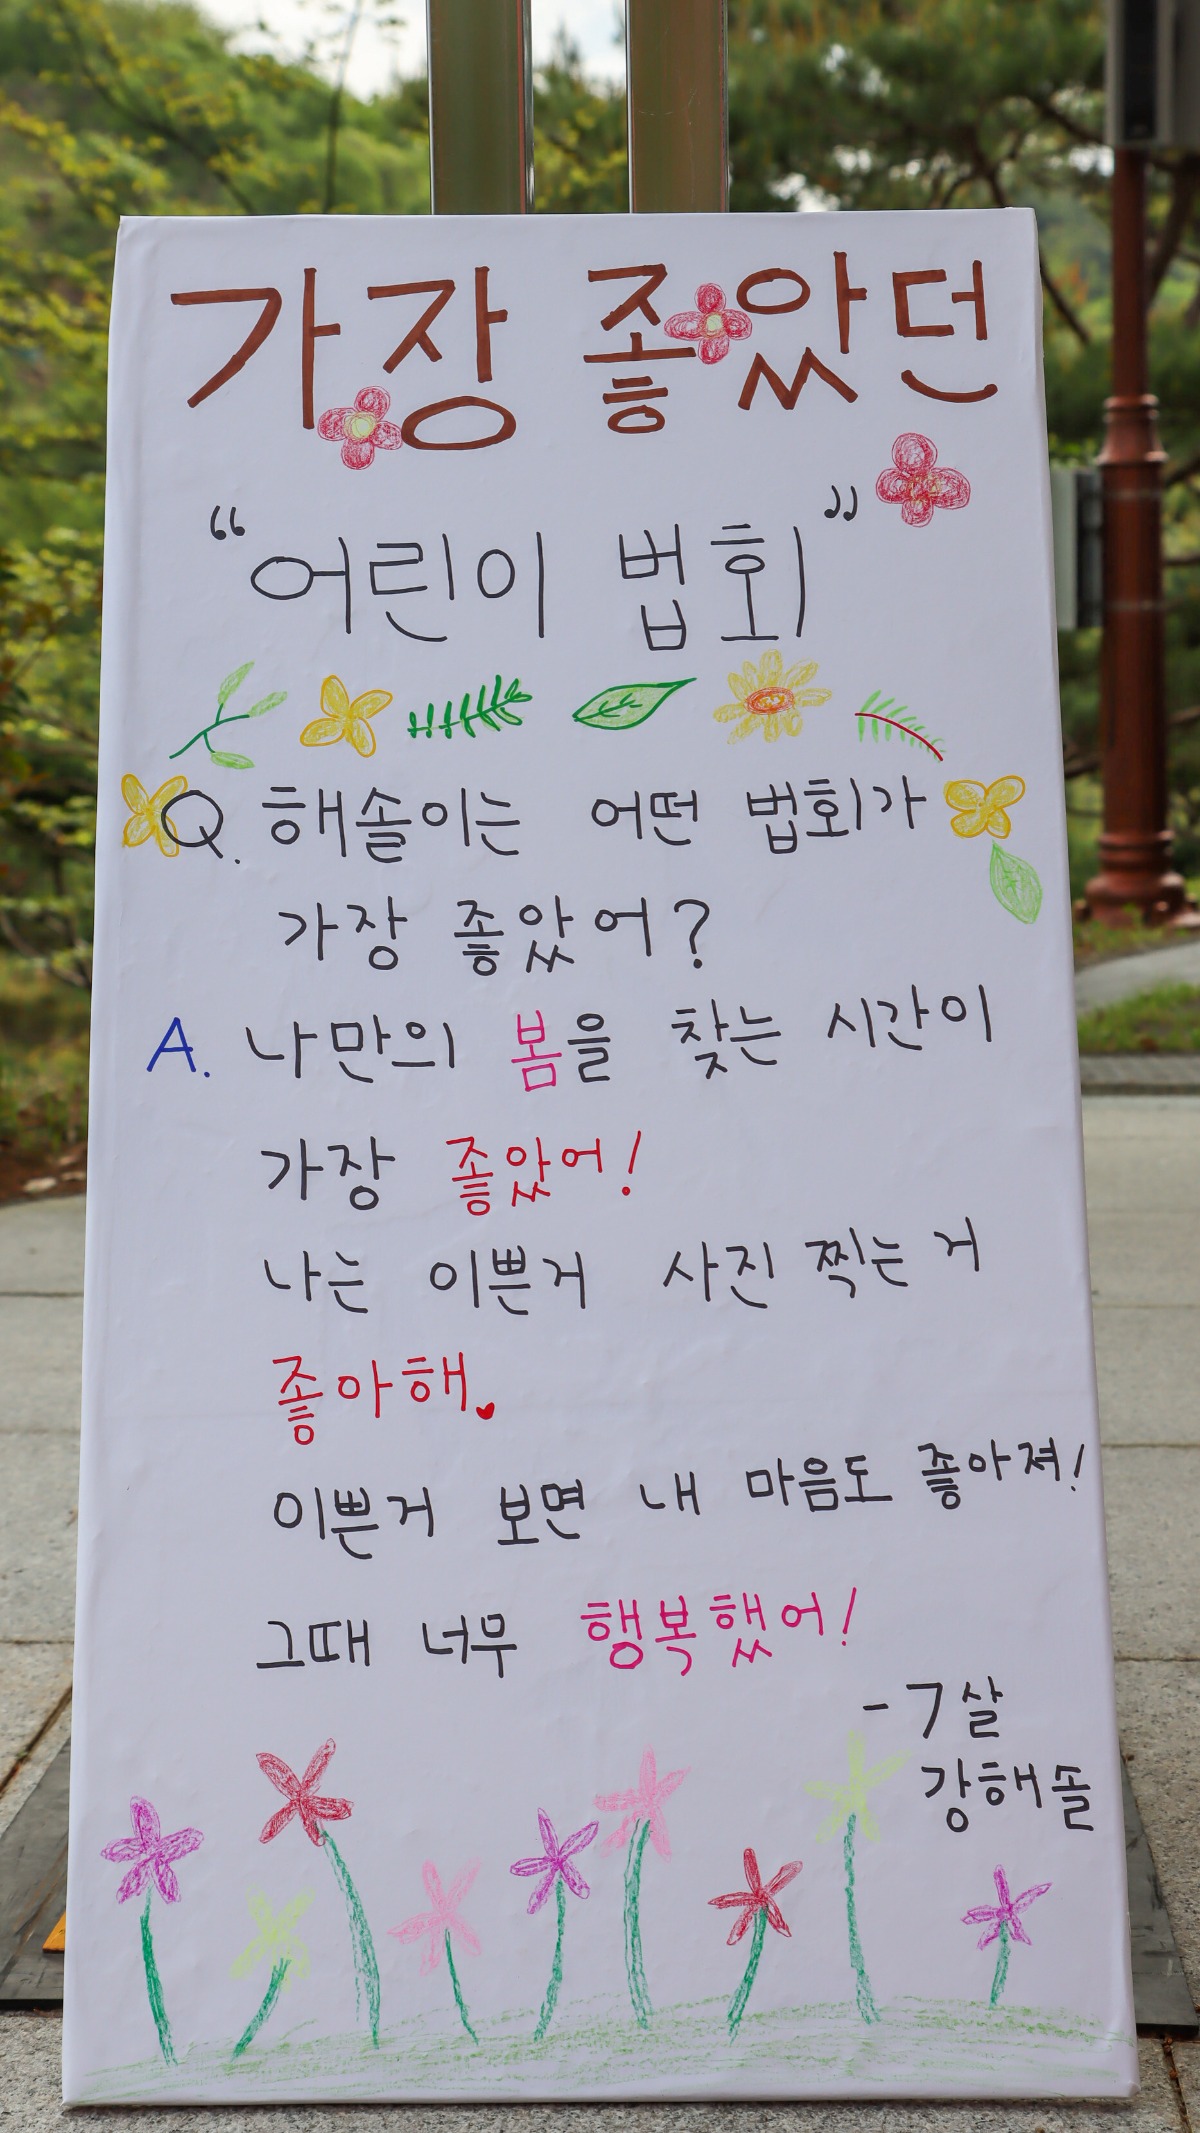 가장 좋았던
"어린이 법회"
Q. 해솔이는 어떤 법회가
가장 좋았어?
A. 나만의 봄을 찾는 시간이
가장 좋았어!
나는 이쁜거 사진 찍는 거
좋아해
이쁜거 보면 내 마음도 좋아져!
그때 너무 행복했어!
-7살
강해솔